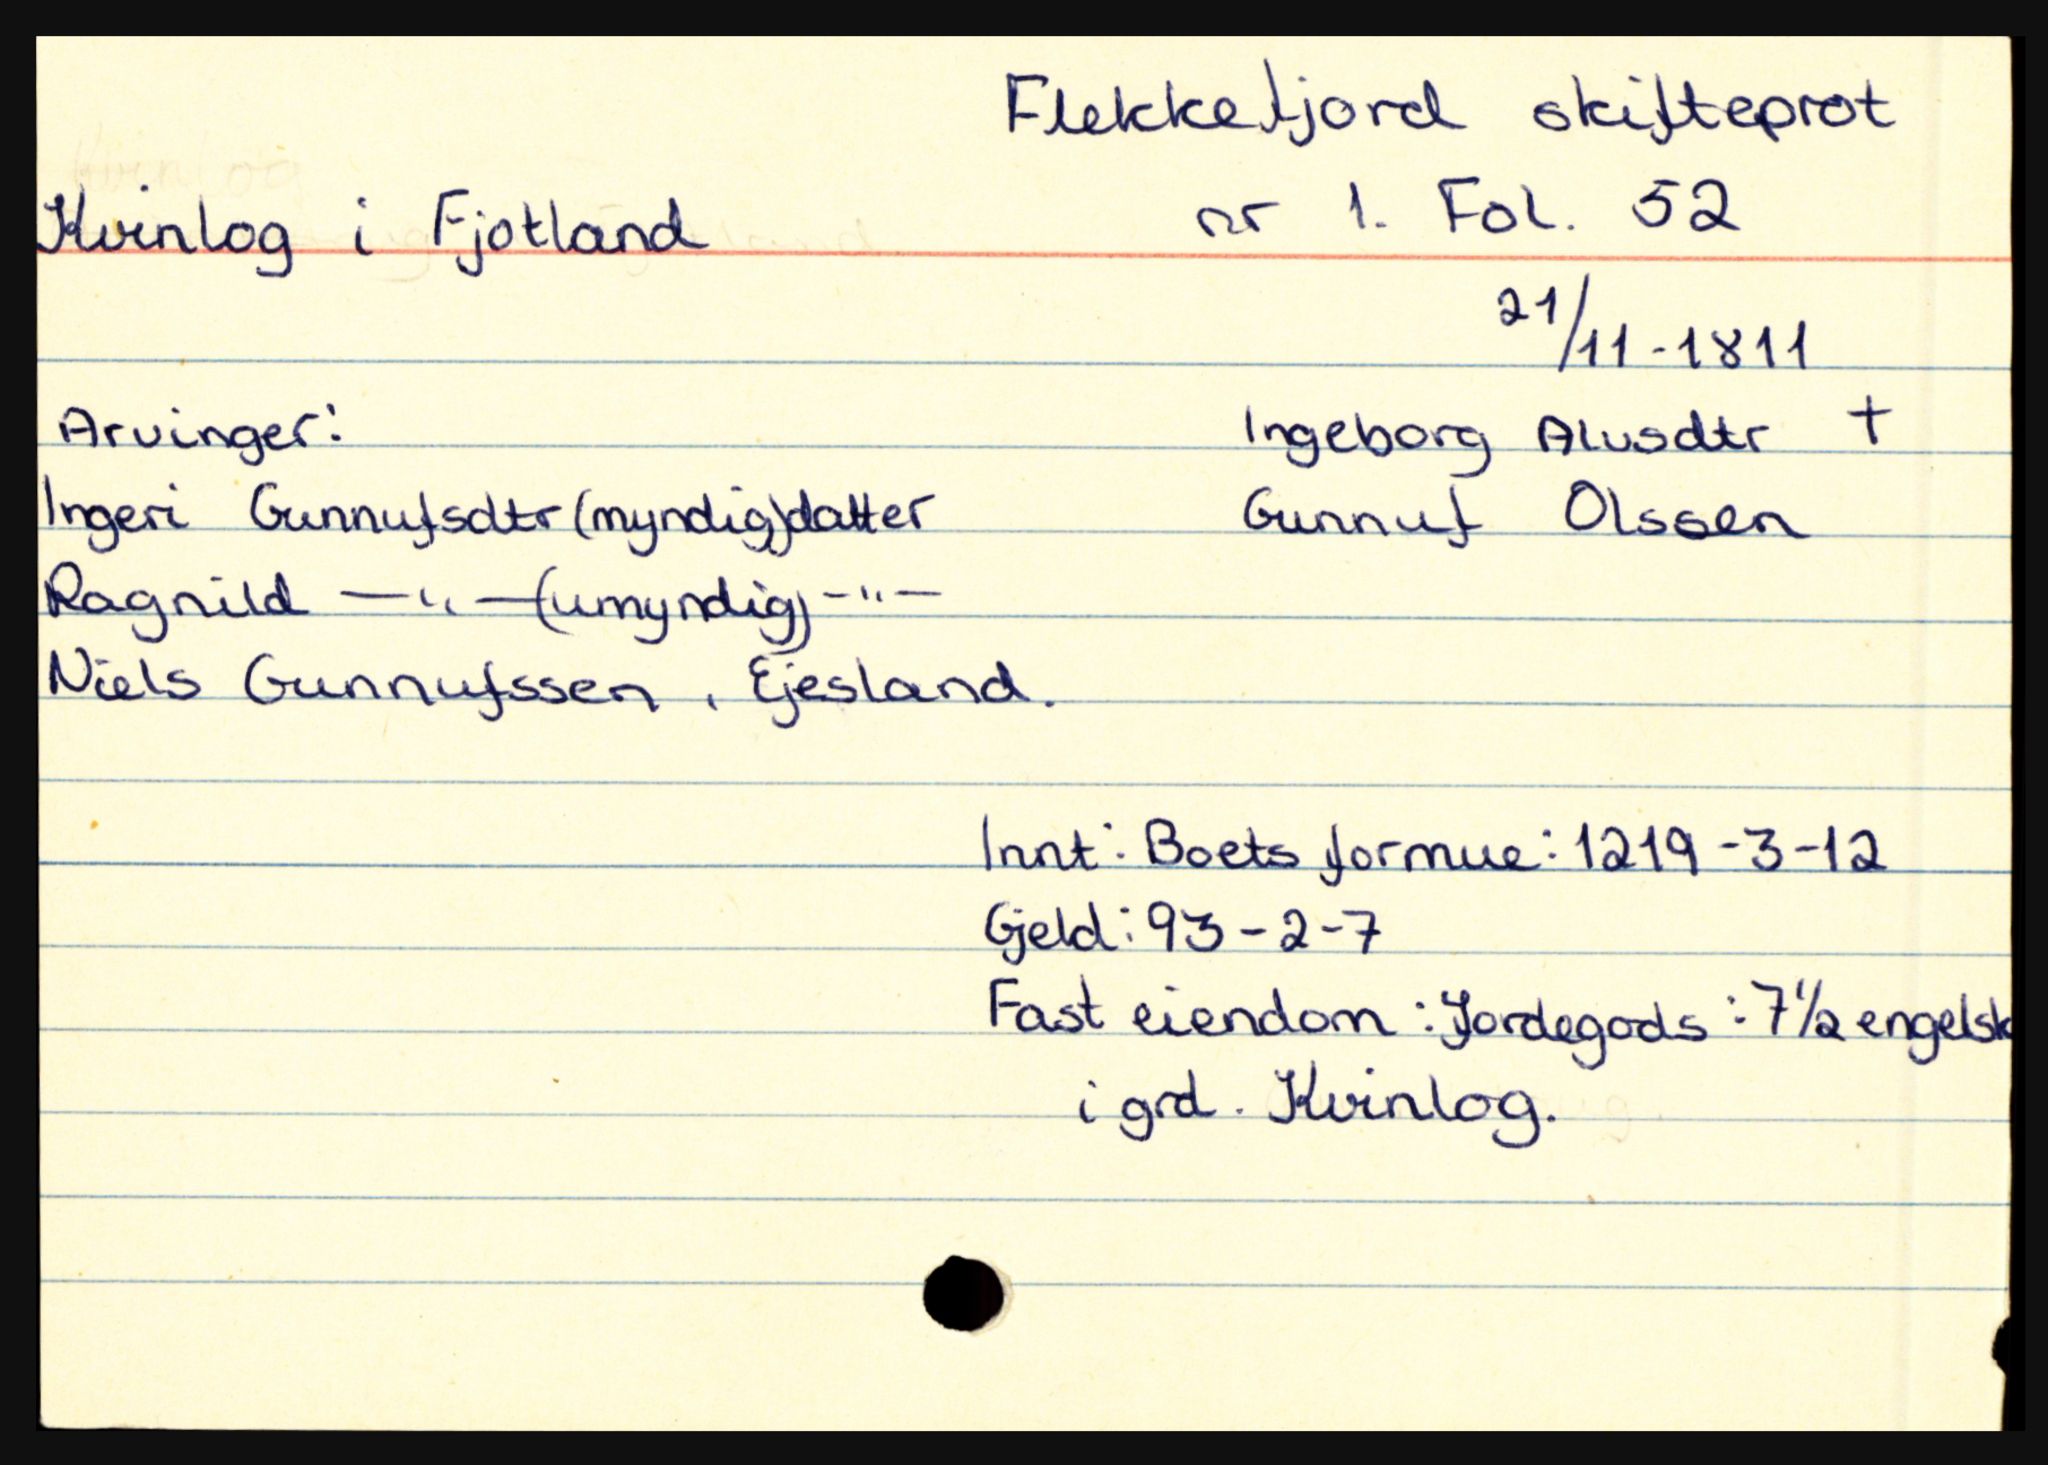 Flekkefjord skifteprot
Kvinlog i Fjotland
nr 1. Fol. 52
21/11-1811
Arvinger:
Ingeborg Alvsdtr †
Ingeri Gunnufsdtr (myndig) datter
Gunnuf Olssen
Ragnild —"— (umyndig) -"-
Niels Gunnufssen, Ejesland.
Innt: Boets formue: 1219-3-12
Gjeld: 93-2-7
Fast eiendom: Jordegods: 7 1/2 engelsk
i grd. Kvinlog.